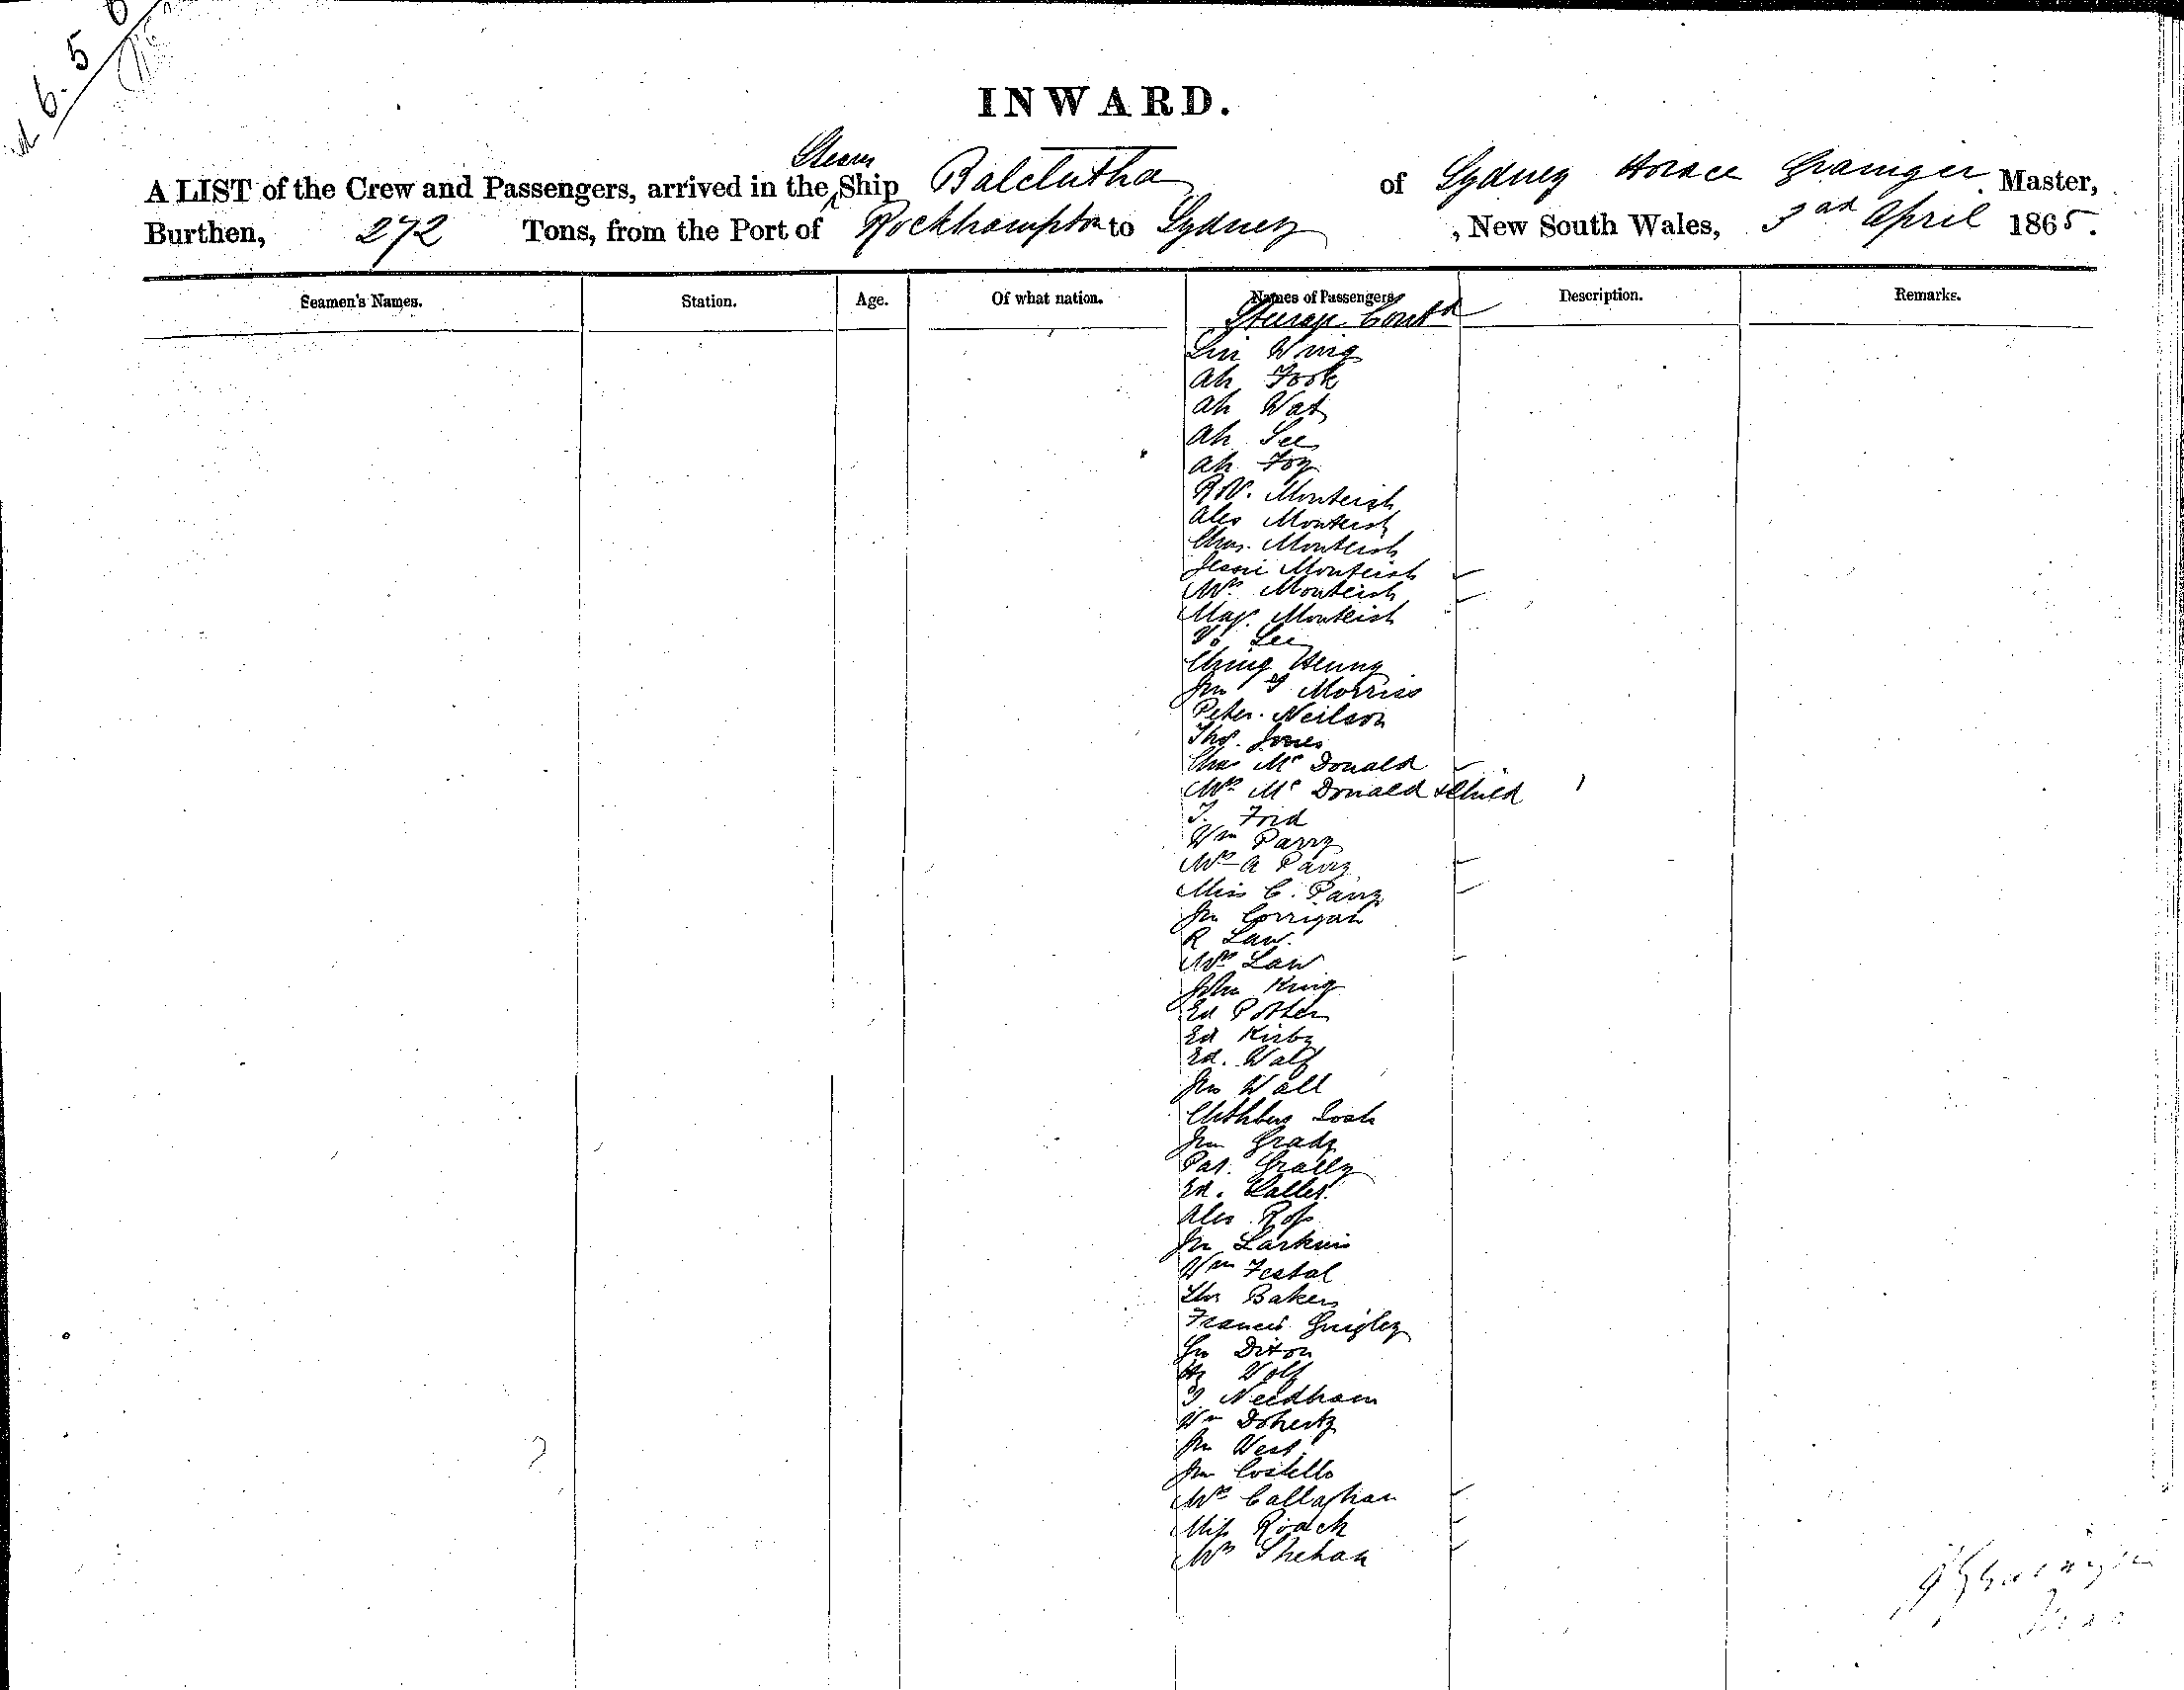 6.5
INWARD.
A LIST of the Crew and Passengers, arrived in the Steam Ship Balclutha of Sydney Horace Grainger Master,
Burthen, 272 Tons, from the Port of Rockhampton to Sydney, New South Wales, 3rd April 1865.
Seamen's Names. Station. Age. Of what nation. Names of Passengers. Description. Remarks.
Steerage Contd
Wing
Ah Fook
Ah Wat
Ah See
Ah Foy
Monteith
Alex Monteith
Chas. Monteith
Jessie Monteith
Mrs. Monteith
Mag. Monteith
Lee
Ching Henny
Jno Morriss
Peter Neilson
Thos. Jones
Chas McDonald
Mrs McDonald & Child
T. Ford
Wm Parry
Mrs A Parry
Miss C. Parry
Jno Corrigan
R Law.
Mrs Law
John King
Ed Potter
Ed Kirby
Ed. Walf
Jno Wall
Jno Grady
Pat. Grally
Ed.
Alex Ross
Jno Larkin
Wm Festal
Thos Baker
Francis Quigley
Geo Dixon
Hy Wolf
Needham
Wm Doherty
Jno West
Jno Costello
Mrs Callaghan
Miss Roach
Mrs Shehan